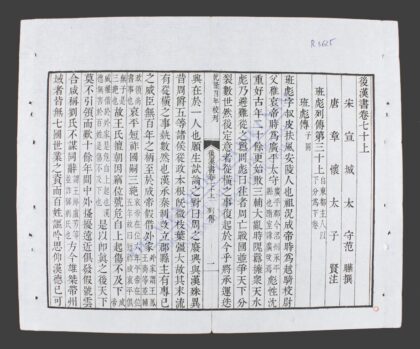 R 1625
後漢書卷七十上
宋宣城太守范曄撰
唐章懷太子賢注
班彪列傳第三十上 自東都主人以下分爲下卷
班彪傳
班彪字叔皮扶風安陵人也祖況成帝時爲越騎校尉
父穉哀帝時爲廣平太守 彪性沈
重好古年二十餘更始敗三輔大亂時隗囂擁衆天水
彪乃避難從之囂問彪曰往者周亡戰國並爭天下分
裂數世然後定意者從橫之事復起於今乎將承運迭
乾隆四年校刊
後漢書卷七十上 列傳 一
興在於一人也願生試論之對曰周之廢興與漢殊異
昔周爵五等諸侯從政本根旣微枝葉彊大故其末流
有從橫之事埶數然也漢承秦制改立郡縣主有專己
之威臣無百年之柄至於成帝假借外家
哀平短祚國嗣三絶
故王氏擅朝因竊位號危自上起傷不及下
是以卽眞之後天下
莫不引領而歎十餘年間中外搔擾遠近俱發假號雲
合咸稱劉氏不謀同辭 方今雄桀帶州
域者皆無七國世業之資而百姓謳吟思仰漢德已可